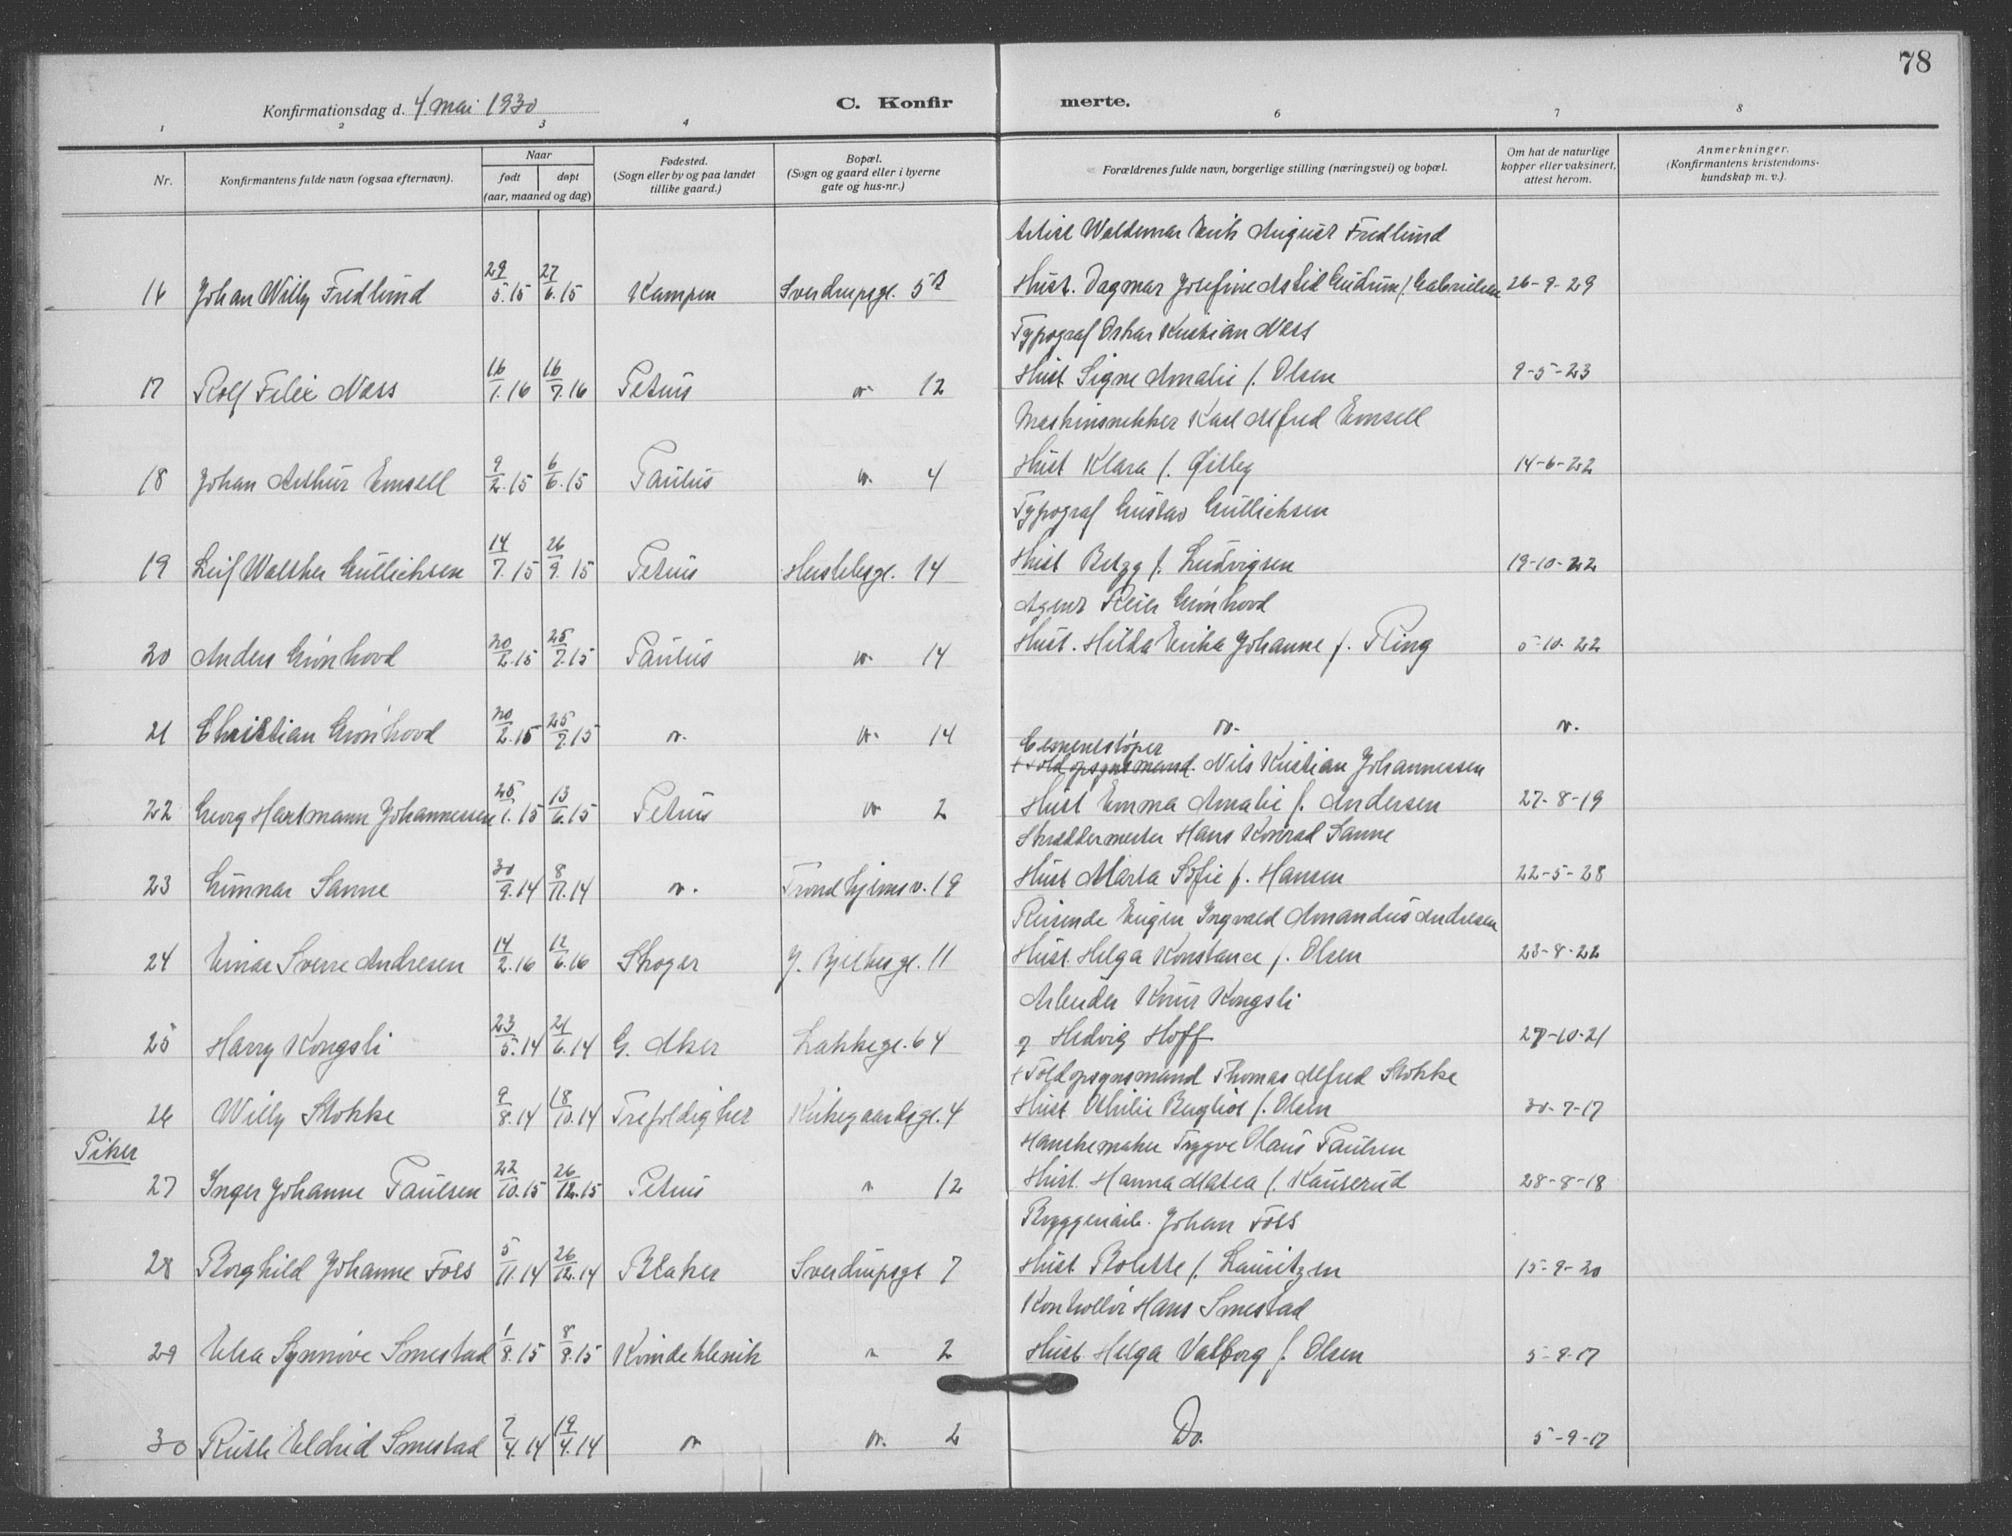 78
Konfirmationsdag d. 4. mai 1930
C. Konfirmerte.
1 2 3 4 6 7 8
Nr.
Konfirmantens fulde navn (ogsaa efternavn).
Naar
født døpt
(aar, maaned og dag)
Fødested.
(Sogn eller by og paa landet
tillike gaard.)
Bopæl.
(Sogn og gaard eller i byerne
gate og hus-nr.)
Forældrenes fulde navn, borgerlige stilling (næringsvei) og bopæl.
Om hat de naturlige
kopper eller vaksinert,
attest herom.
Anmerkninger.
(Konfirmantens kristendoms-
kundskap m. v.).
Artist Waldemar Erik August Fredlund
16 Johan Willy Fredlund 29/5.15 27/6.15 Kampen Sverdrupsgt. 5 Hust. Dagmar Josefine Astrid Gudrun f. Gabrielsen 26-9-29
Typograf Oskar Kristian Næss
17 Rolf Felix Næss 16/1.16 16/7.16 Petrus " 12 Hust. Signe Amalie f. Olsen 9-5-23
Maskinsnekker Karl Alfred Emsell
18 Johan Arthur Emsell 9/2.15 6/6.15 Paulus " 4 Hust Klara f. 14-6-22
Typograf Gustav Gullichsen
19 Leif Walther Gullichsen 14/7.15 26/9.15 Petrus 14 Hust Betzy f. Ludvigsen 19-10-22
Agent Grønhovd
20 Anders Grønhovd 20/2.15 25/7.15 Paulus " 14 Hust. Hilda Erika Johanne f. Ring 5-10-22
21 Christian Grønhovd 20/2.15 25/7.15 " " 14 " "
Cementstøper
+ Toldopsynsmand. Nils Kristian Johannessen
22 Georg Hartmann Johannessen 25/1.15 13/6.15 Petrus " 2 Hust Emma Amalie f. Andersen 27-8-19
Skræddermester Hans Konrad Sanne
23 Gunnar Sanne 30/9.14 8/11.14 " Trondhjemsv. 19 Hust Marta Sofie f. Hansen 22-5-28
Reisende Eugen Ingvald Amandus Andresen
24 Einar Sverre Andresen 14/2.16 12/6.16 Skoger G. Bjelkesgt. 11 Hust. Helga Konstance f. Olsen 23-8-22
Arbeider Knut Kongsli
25 Harry Kongsli 23/5.14 21/6.14 G. Aker Lakkegt. 64 og Hedvig Hoff 27-10-21
+ Toldopsynsmand Thomas Alfred Stokke
26 Willy Stokke 9/8.14 18/10.14 Trefoldighet Kirkegaardsgt. 4 Hust Othilie Bergliot f. Olsen 30-7-17
Piker
Hanskemaker Trygve Olaus Paulsen
27 Inger Johanne Paulsen 22/10.15 26/12.15 Petrus " 12 Hust. Hanna Matea f. Kauserud 28-8-18
Byggeriarb. Johan Foss
28 Borghild Johanne Foss 5/11.14 26/12.14 Blaker Sverdrupsgt 7 Hust. Bolette f. Lauritzen 15-9-20
Kontrollør Hans Smestad
29 Elsa Synnøve Smestad 1/8.15 8/8.15 Kvindeklinik " 2 Hust. Helga Valborg f. Olsen 5-9-17
30 Ruth Eldrid Smestad 7/4.14 19/4.14 " " 2 Do. 5-9-17